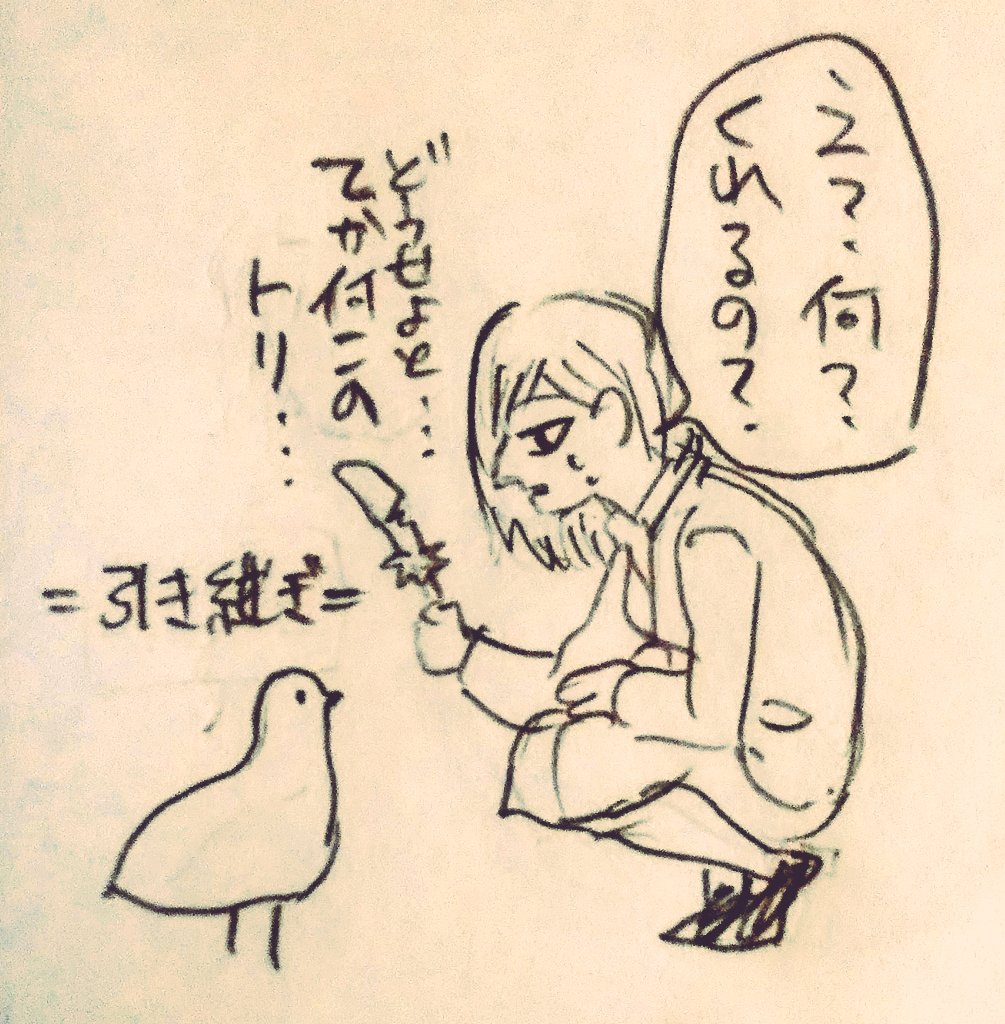 え?何?
くれるの?
どうせよと…
てか何この
トリ…
=引き継ぎ=